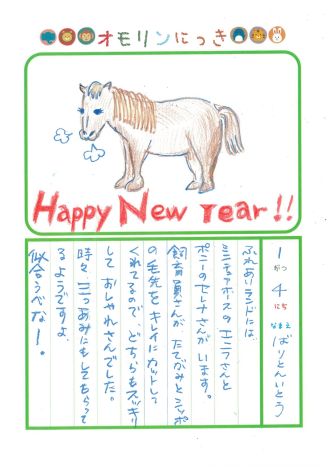 オモリンにっき
Happy New Year!!
1がつ4にち なまえ ばりとんいとう
ふれあいランドには、
ミニチュアホースのエニフさんと
ポニーのセレナさんがいます。
飼育員さんが、たてがみとシッポ
の毛先をキレイにカットして
くれてるので、どちらもスッキリ
しておしゃれさんでした。
時々、三つあみにもしてもらって
るようですよ。
似合うべなー。